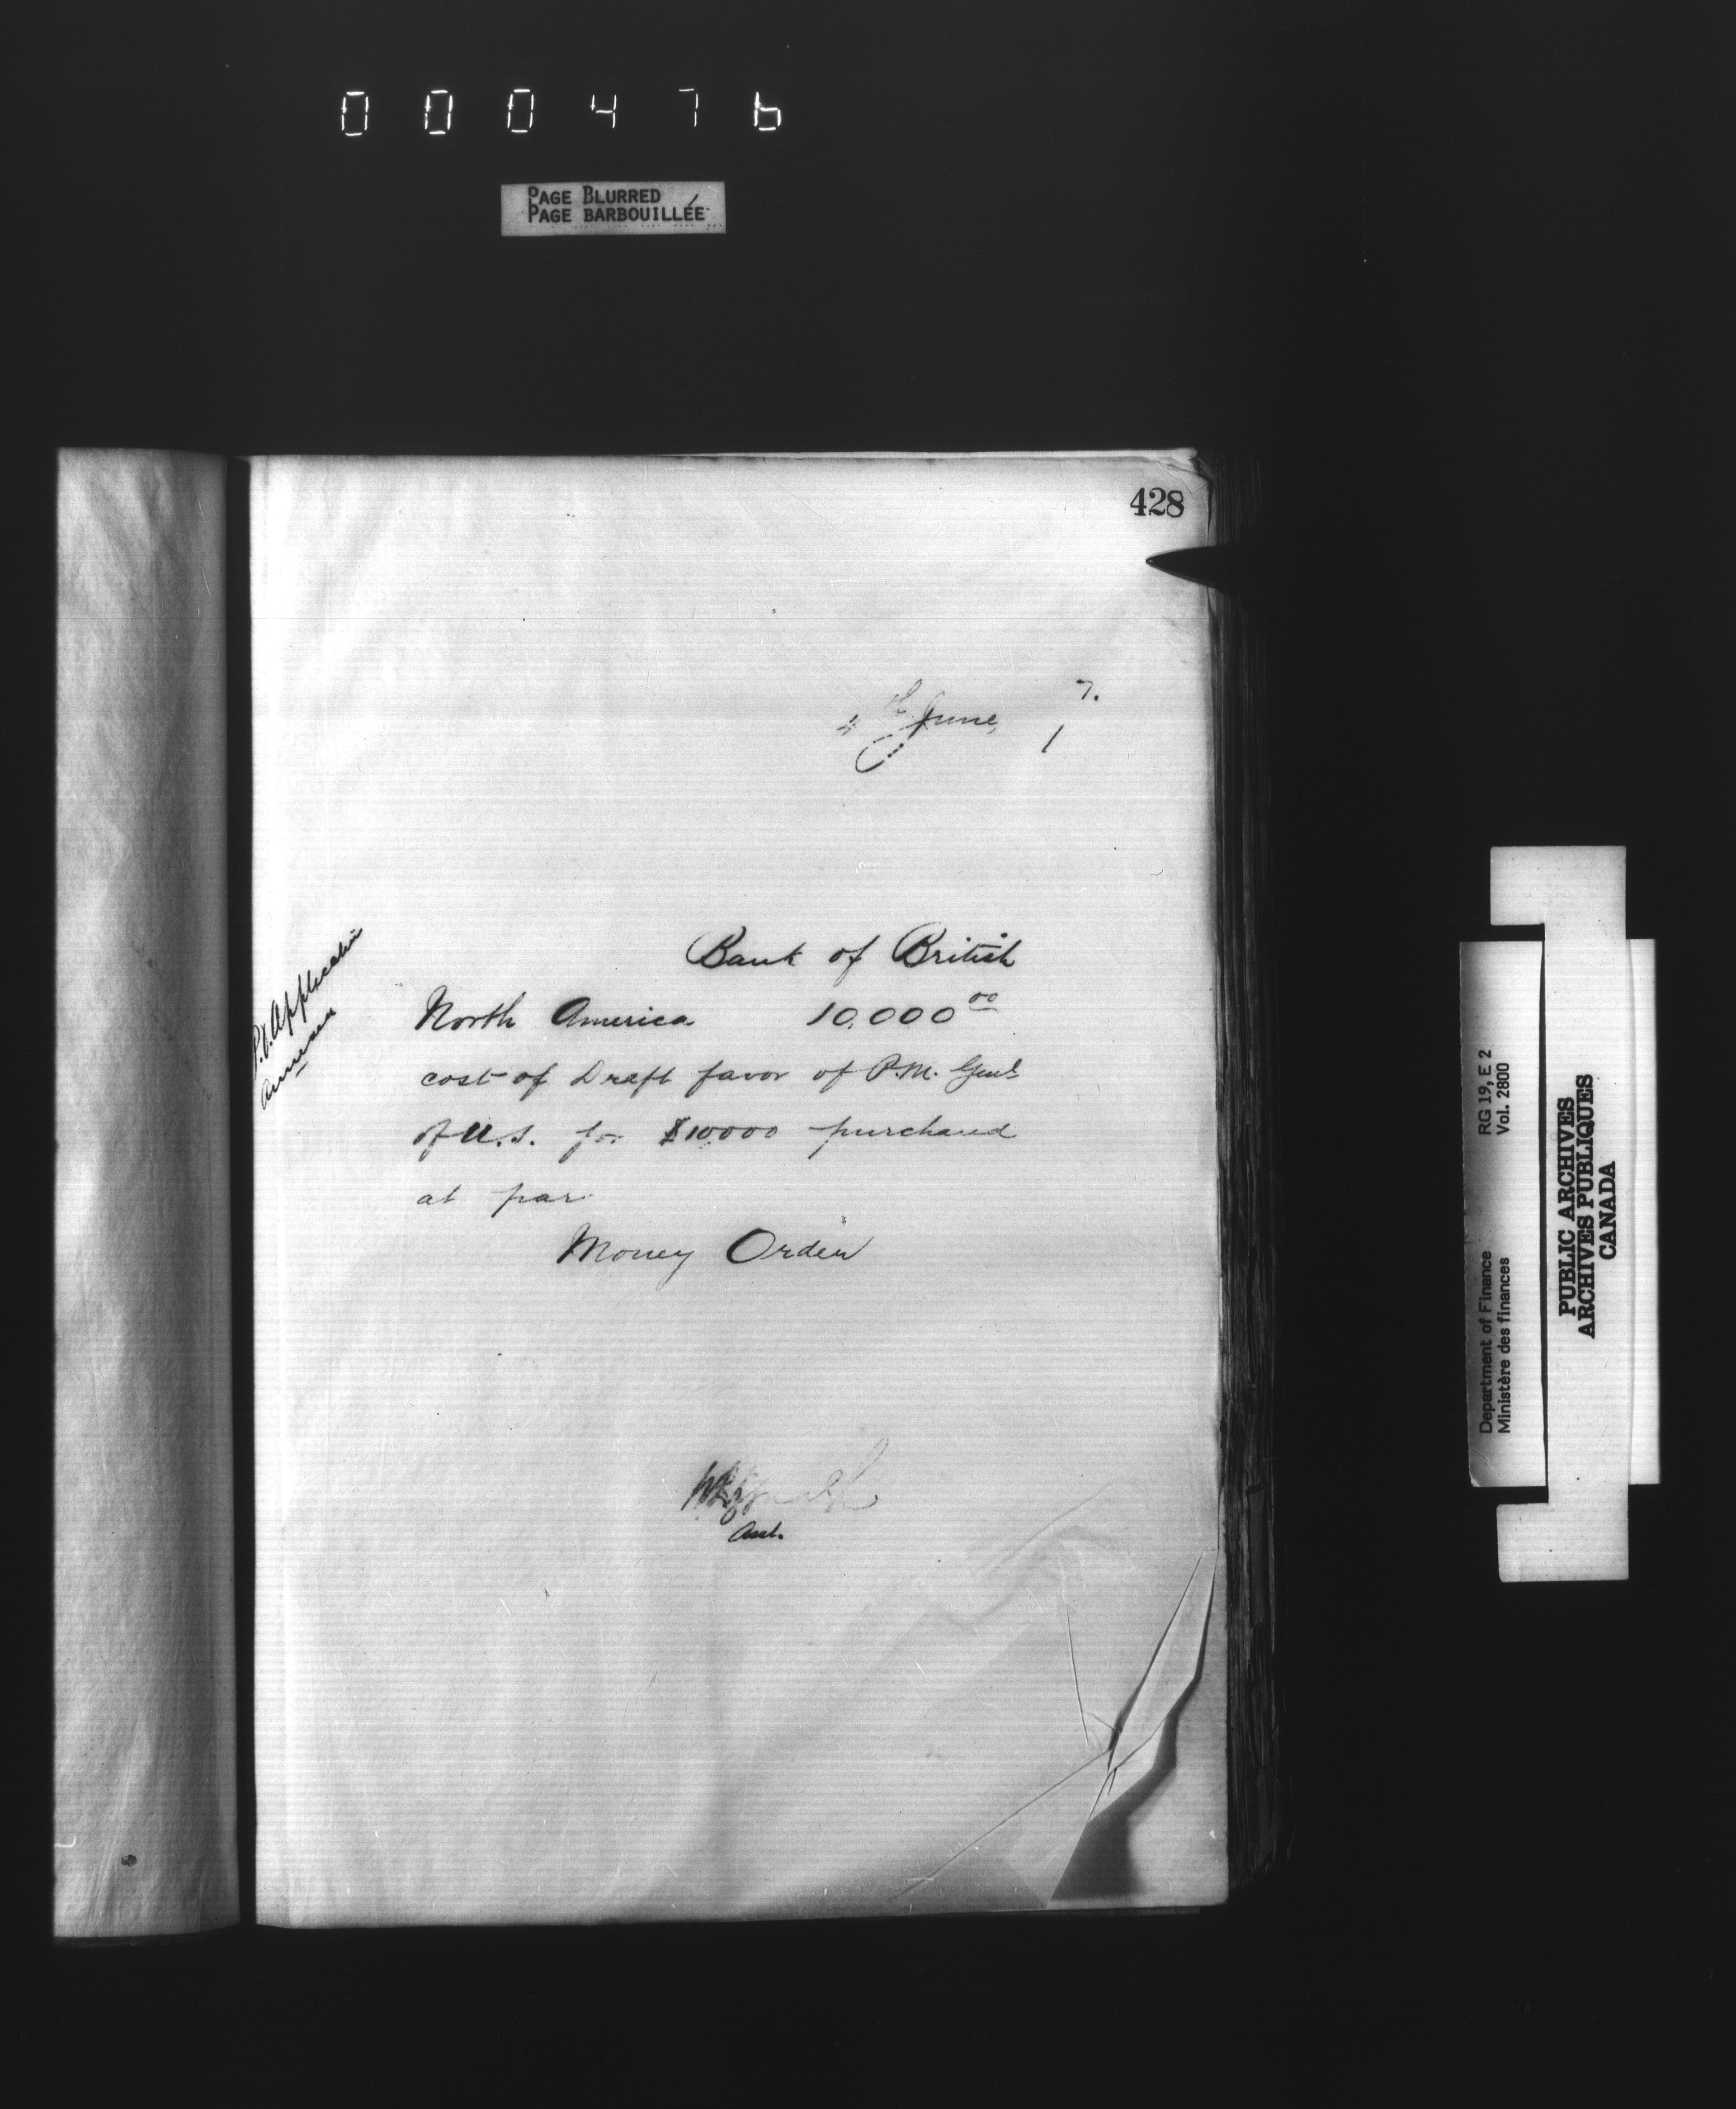 000476
PAGE BLURRED
PAGE BARBOUILLÉE
428
th June, 7.
1
Bank of British
North America 10,000 00
cost of Draft favor of P.M. Genl
of U.S. for $10000 purchased
at par
Money Orders
P.O. Application
annexed
Asst.
Department of Finance RG 19, E 2
Ministère des finances Vol. 2800
PUBLIC ARCHIVES
ARCHIVES PUBLIQUES
CANADA